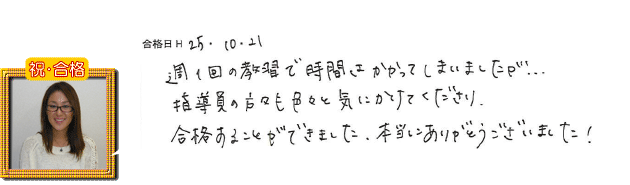 祝・合格
合格日 H 25・10・21
週1回の教習で時間はかかってしまいましたが…
指導員の方々も色々と気にかけてくださり、
合格することができました。本当にありがとうございました！